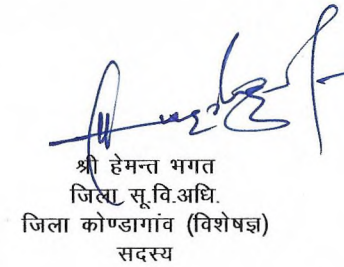 श्री हेमन्त भगत
जिला सू.वि.अधि.
जिला कोण्डागांव (विशेषज्ञ)
सदस्य